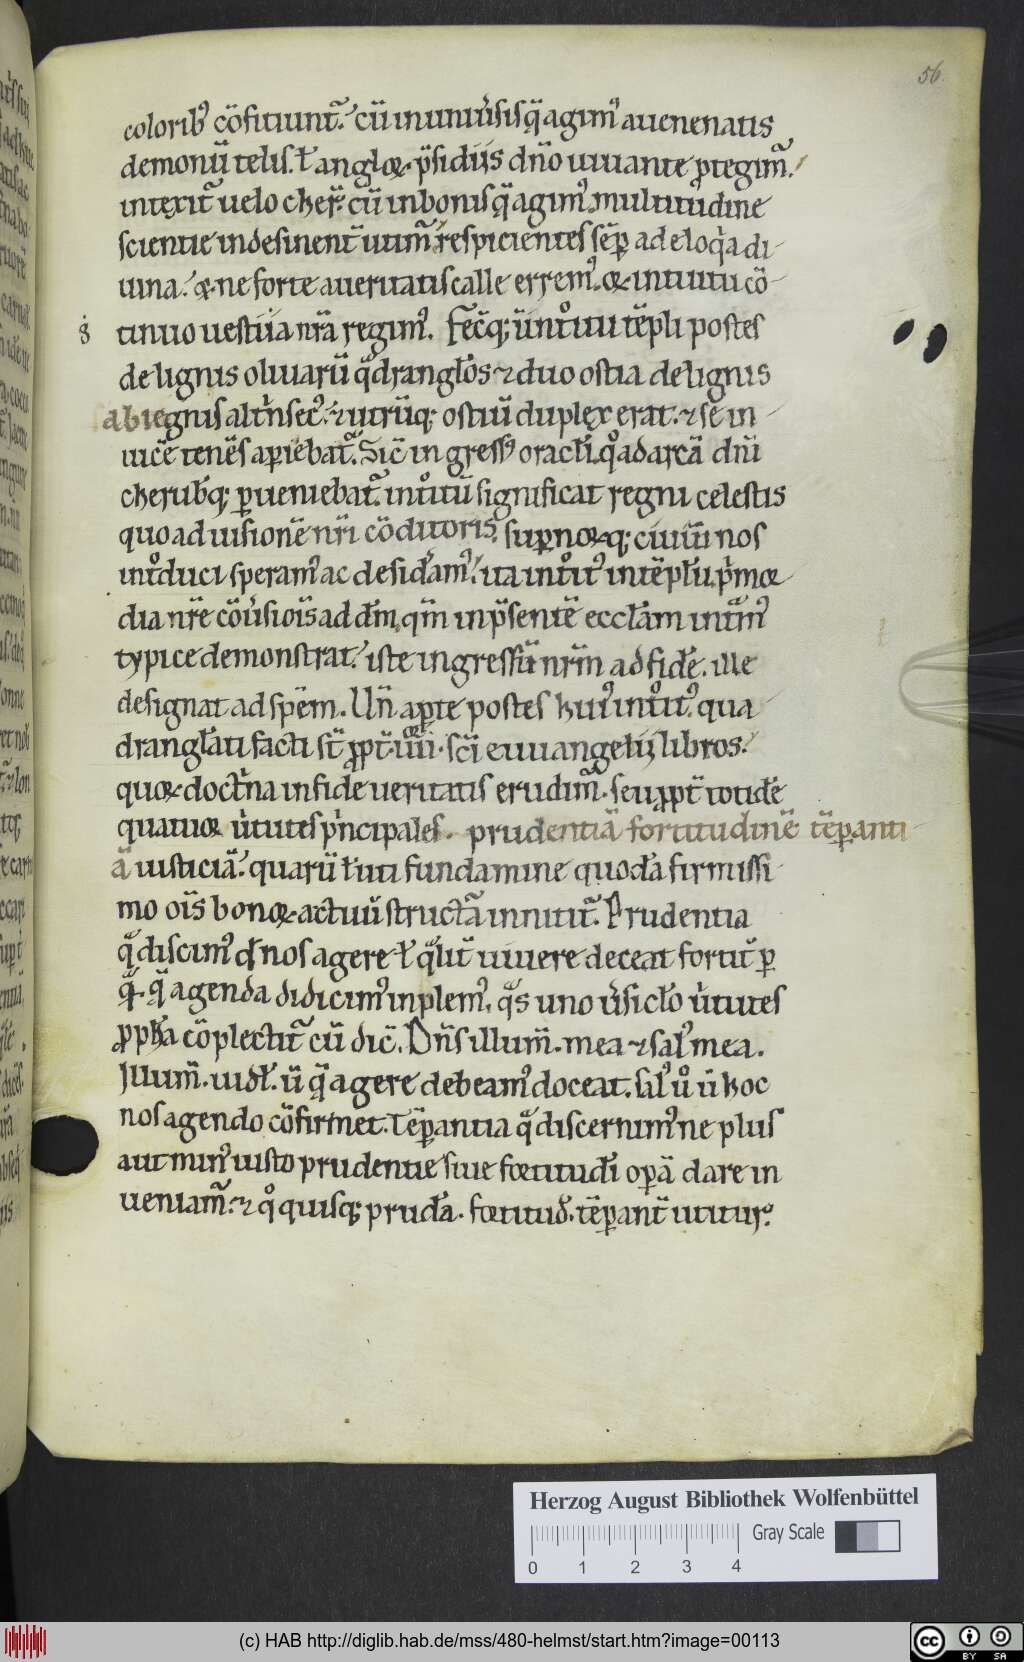 56
colorib᷒ cōfitiunt᷑. cū in uniu̾sis q̄ agim᷒ auenenatis
demonū telis. ł angloꝝ p̄sidiis dn̄o iuuante ꝓtegim᷑.
intexit᷑ uelo cher̄. cū in bonis q̄ agim᷒ multitudine
scientie indesinent̄ utim᷑ respicientes sēꝑ ad eloq̄a di
uina. & ne forte a ueritatis calle errem᷒. & intuitu cō
tinuo uestiḡia nr̄a regim᷒. Fecitq; ūntͦitu tēpli postes
de lignis oliuarū q̄drangłos ⁊ duo ostia de lignis
abiegnis alt̾nsec᷒. ⁊ utrūq; ostiū duplex erat. ⁊ se in
uicē tenēs aꝑiebat᷑. Sic̄ ingress᷒ oracłi, qͦ ad arcā dn̄i
cherub̄q; ꝑueniebat᷑. intͦitū significat regni celestis
quo ad uisionē nr̄i cōditoris, suꝑnoꝝq; ciuiū nos
intͦduci speram᷒ ac desid̾am᷒. ita intͦit᷒ in tēpłū, p̾mor
dia nr̄e cōu̾siōis ad dm̄, qm̄ in p̄sentē eccłam int̾m᷒
typice demonstrat. iste ingressū nr̄m ad fidē. ille
designat ad spēm. Un̄ aꝑte postes hui᷒ intͦit᷒. qua
drangłati facti st̄ ꝓpt̄ .iiii. sc̄i euuangelii libros.
quoꝝ doct̾na in fide ueritatis erudim᷑. seu ꝓpt̄ totidē
quatuor u̾tutes p̾ncipales. prudentiā fortitudinē tēꝑanti
ā iusticiā. quarū łuti fundamine quodā firmissi
mo oīs bonoꝝ actuū structā innitit᷑. Prudentia
q̄ discim᷒ qd̄ nos agere ł q̄lit̄ uiuere deceat fortit᷑ ꝑ
q̄. q̄ agenda didicim᷒ inplem᷒. q̄s uno u̾sicło u̾tutes
ꝓpħa cōplectit᷑ cū dic̄. Dn̄s illum̄. mea ⁊ sal᷒ mea.
Illum̄. uidł. ū q̄ agere debeam᷒ doceat. sal᷒ uͦ ū hoc
nos agendo cōfirmet. Tēꝑantia q̄ discernim᷒ ne plus
aut min᷒ iusto prudentie siue fortitudi oꝑā dare in
ueniam᷑. ⁊ qͦ quisq; prudā. fortitud̾. tēꝑant̄ utitur.
Herzog August Bibliothek Wolfenbüttel
Gray Scale
0 1 2 3 4
(c) HAB http://diglib.hab.de/mss/480-helmst/start.htm?image=00113
cc BY SA